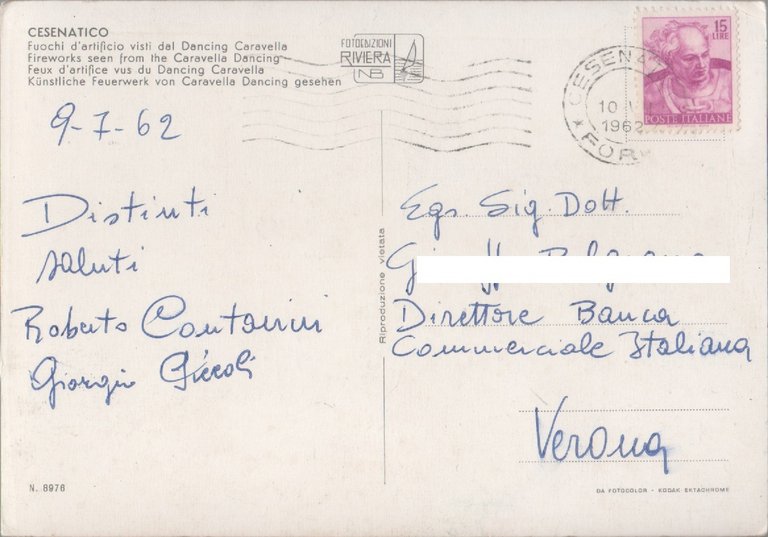 CESENATICO
Fuochi d'artificio visti dal Dancing Caravella
Fireworks seen from the Caravella Dancing
Feux d'artifice vus du Dancing Caravella
Künstliche Feuerwerk von Caravella Dancing gesehen
FOTOEDIZIONI
RIVIERA
NB
CESENAT
10
1962
FOR
15
LIRE
POSTE ITALIANE
9-7-62
Distinti
saluti
Roberto Contarini
Giorgio Piccoli
Riproduzione vietata
Egr. Sig. Dott.
Direttore Banca
Commerciale Italiana
Verona
N. 8976
DA FOTOCOLOR - KODAK EKTACHROME